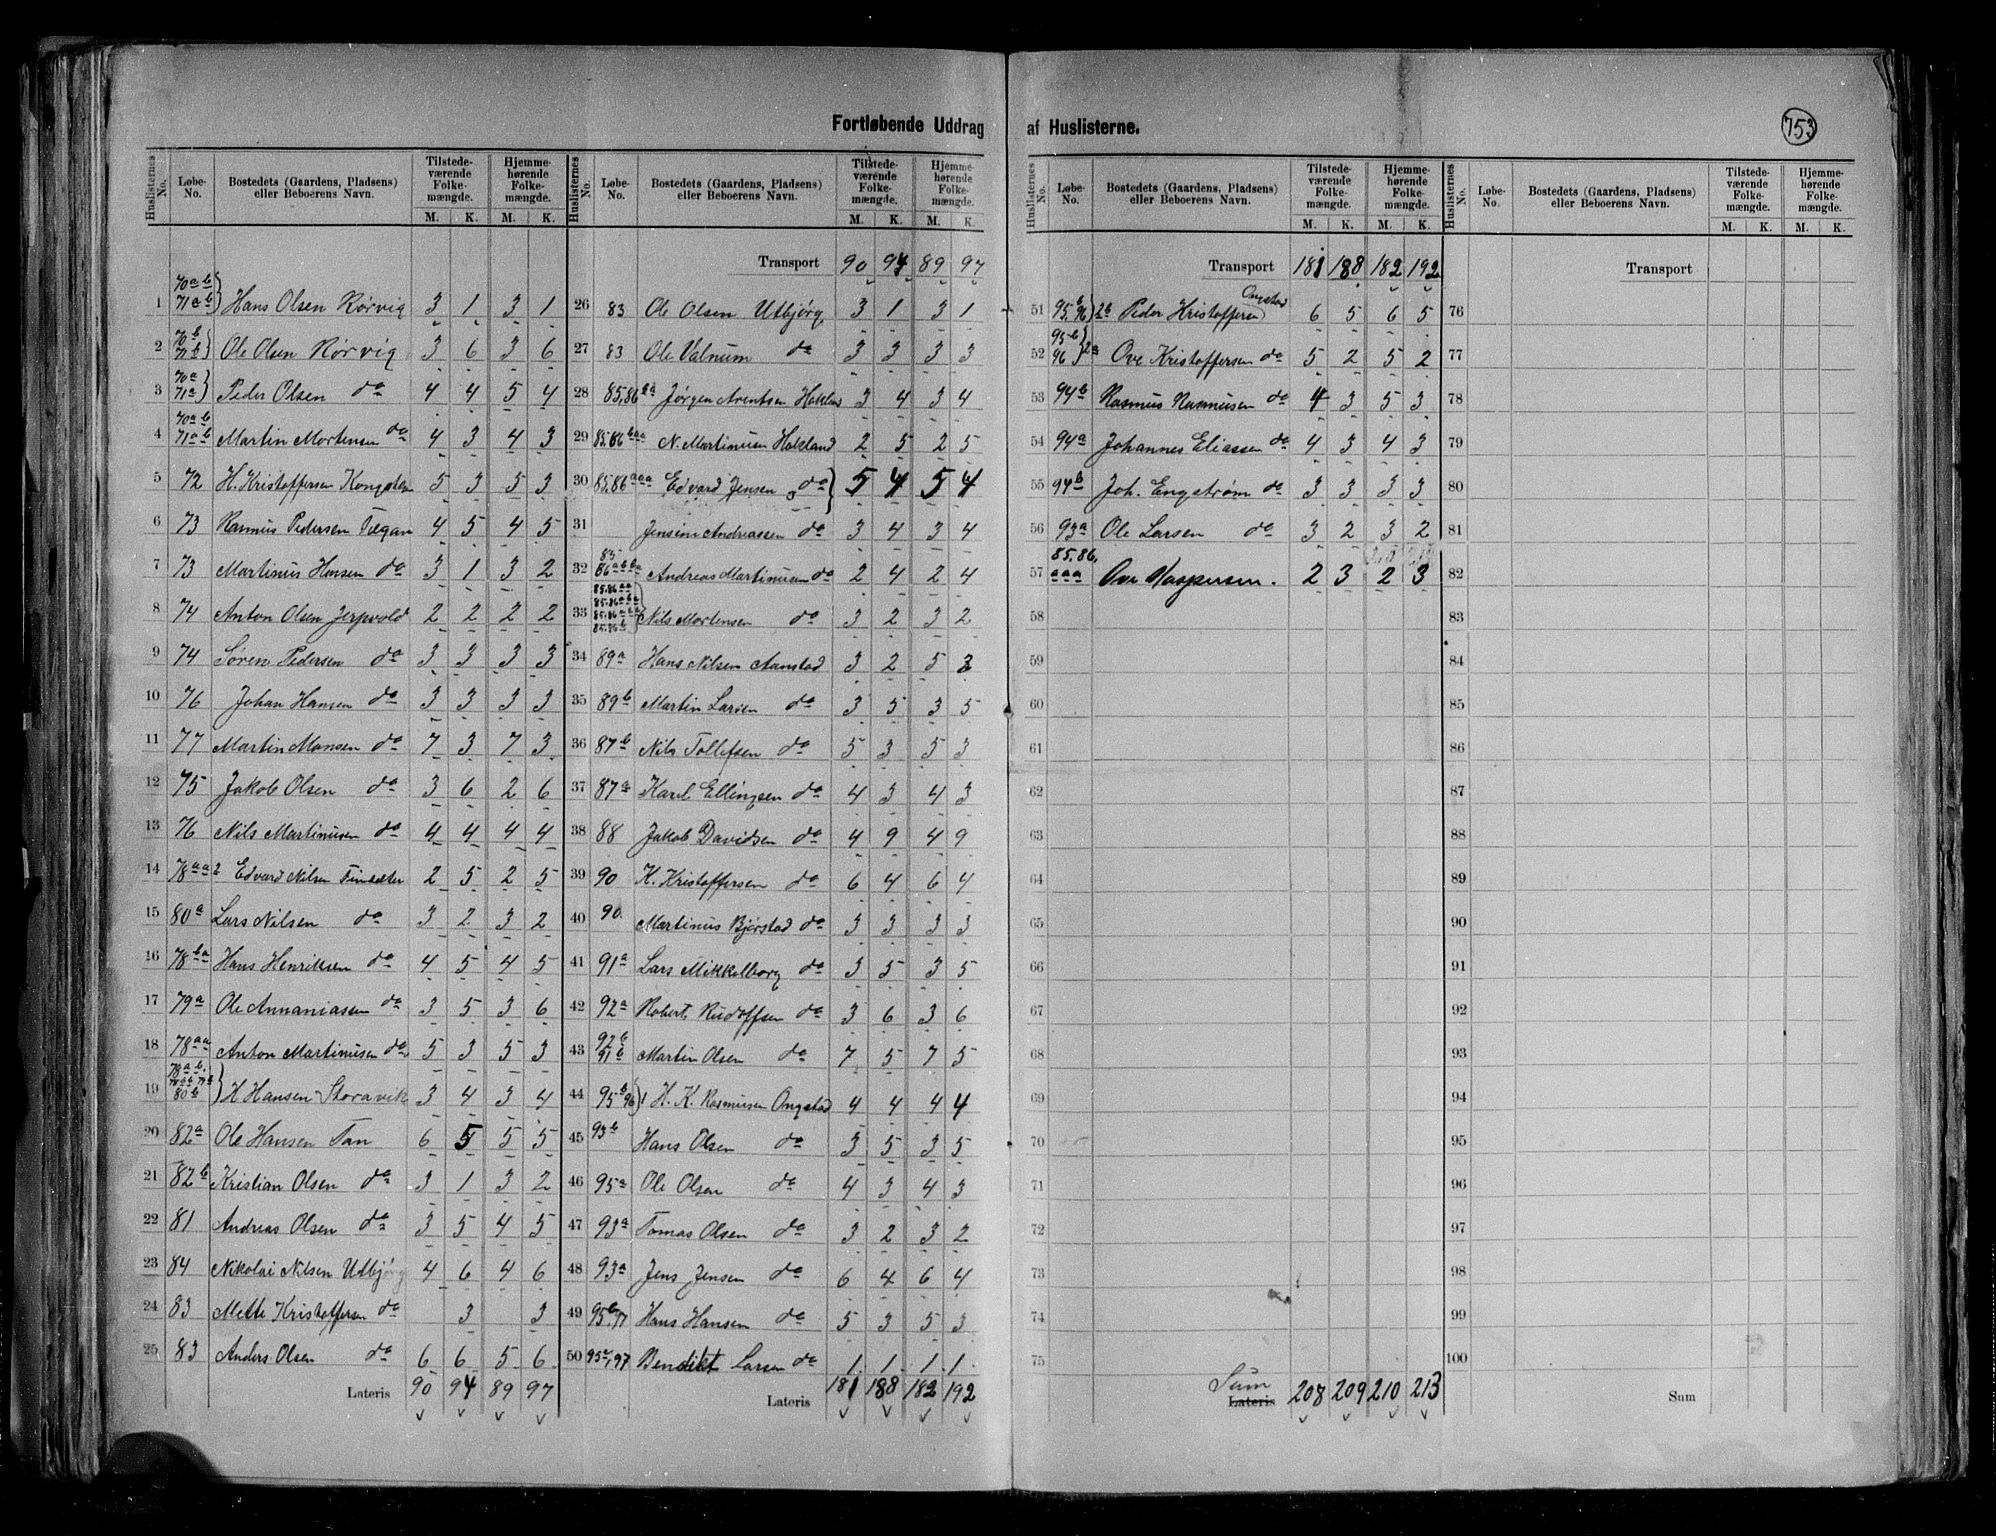 Fortløbende Uddrag af Huslisterne.
753
Huslisternes No. | Løbe-No. | Bostedets (Gaardens, Pladsens) eller Beboerens Navn. | Tilstedeværende Folkemængde. M. K. | Hjemmehørende Folkemængde. M. K.
1 70 a b 71 a b } Hans Olsen Rørvig 3 1 3 1
2 70 b 71 b } Ole Olsen Rørvig 3 6 3 6
3 70 a 71 a } Peder Olsen do 4 4 5 4
4 70 a b 71 a b Martin Mortensen do 4 3 4 3
5 72 H. Kristoffersen 5 3 5 3
6 73 Rasmus Pedersen 4 5 4 5
7 73 Martinus Hansen do 3 1 3 2
8 74 Anton Olsen Jerpvold 2 2 2 2
9 74 Søren Pedersen do 3 3 3 3
10 76 Johan Hansen do 3 3 3 3
11 77 Martin Monsen do 7 3 7 3
12 75 Jakob Olsen do 3 6 2 6
13 76 Nils Martinusen do 4 4 4 4
14 78 a a 2 Edvard Nilsen 2 5 2 5
15 80 a Lars Nilsen do 3 2 3 2
16 78 b a Hans Henriksen do 4 5 4 5
17 79 a Ole Annaniassen do 3 5 3 6
18 78 a a Anton Martinusen do 5 3 5 3
19 80 b } H Hansen Storavik 3 4 3 4
20 82 a Ole Hansen Tan 6 5 5 5
21 82 b Kristian Olsen do 3 1 3 2
22 81 Andreas Olsen do 3 5 4 5
23 84 Nikolai Nilsen Utbjørg 4 6 4 6
24 83 Mette Kristoffersen do 3 3
25 83 Anders Olsen do 6 6 5 6
Lateris 90 94 89 97
Huslisternes No. | Løbe-No. | Bostedets (Gaardens, Pladsens) eller Beboerens Navn. | Tilstedeværende Folkemængde. M. K. | Hjemmehørende Folkemængde. M. K.
Transport 90 94 89 97
26 83 Ole Olsen Utbjørg 3 1 3 1
27 83 Ole Valnum do 3 3 3 3
28 85,86 Jørgen Arentsen 3 4 3 4
29 85,86 b a a N. Martinusen Hakland 2 5 2 5
30 85,86 a a a Edvard Jensen do } 5 4 5 4
31 Jensine Andreassen do 3 4 3 4
32 85 86 a b b a Andreas Martinusen do 2 4 2 4
33 85.86 a a 85.86 a b a 85.86 a b a 85.86 b } Nils Mortensen do 3 2 3 2
34 89 a Hans Nilsen Aanstad 3 2 5 3
35 89 b Martin Larsen do 3 5 3 5
36 87 b Nils Tollefsen do 5 3 5 3
37 87 a Karl Ellingsen do 4 3 4 3
38 88 Jakob Davidsen do 4 9 4 9
39 90 K. Kristoffersen do 6 4 6 4
40 90 Martinus Bjørstad do 3 3 3 3
41 91 a Lars Mikkelborg do 3 5 3 5
42 92 a Robert Rudolfsen do 3 6 3 6
43 92 b 91 b Martin Olsen do 7 5 7 5
44 95 b 96 } 1 H. K. Rasmusen Ongstad 4 4 4 4
45 93 b Hans Olsen do 3 5 3 5
46 95 a Ole Olsen do 4 3 4 3
47 93 a Tomas Olsen do 3 2 3 2
48 93 a Jens Jensen do 6 4 6 4
49 95 b, 97 Hans Hansen do 5 3 5 3
50 95 a, 97 Bendikt Larsen do 1 1 1 1
Lateris 181 188 182 192
Huslisternes No. | Løbe-No. | Bostedets (Gaardens, Pladsens) eller Beboerens Navn. | Tilstedeværende Folkemængde. M. K. | Hjemmehørende Folkemængde. M. K.
Transport 181 188 182 192
51 95 b, 96 } 2 b Peder Kristoffersen Ongstad 6 5 6 5
52 95 b 96 } 2 a Ove Kristoffersen do 5 2 5 2
53 94 b Rasmus Rasmusen do 4 3 5 3
54 94 a Johannes Eliassen do 4 3 4 3
55 94 b Joh. Engstrøm do 3 3 3 3
56 93 a Ole Larsen do 3 2 3 2
57 85.86. a a a Ove Kaspersen. 2 3 2 3
58
59
60
61
62
63
64
65
66
67
68
69
70
71
72
73
74
75
Sum Lateris 208 209 210 213
Huslisternes No. | Løbe-No. | Bostedets (Gaardens, Pladsens) eller Beboerens Navn. | Tilstedeværende Folkemængde. M. K. | Hjemmehørende Folkemængde. M. K.
Transport
76
77
78
79
80
81
82
83
84
85
86
87
88
89
90
91
92
93
94
95
96
97
98
99
100
Sum